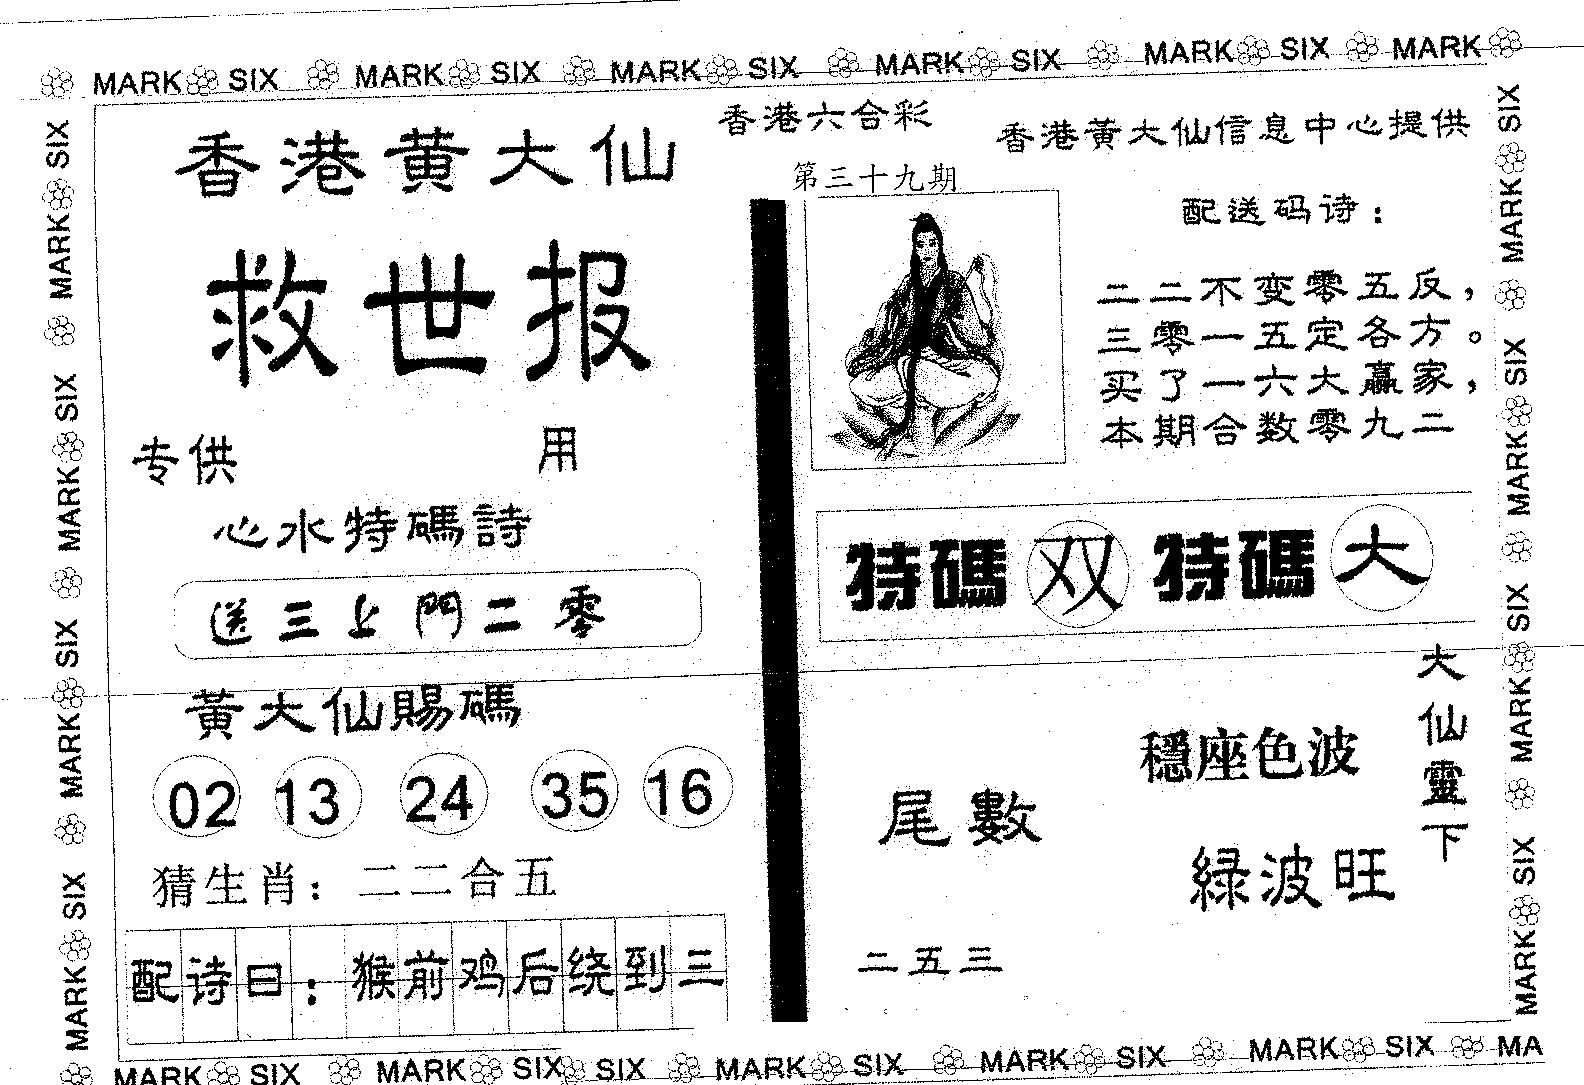 MARK SIX MARK SIX MARK SIX MARK SIX MARK SIX MARK
香港黄大仙
救世报
专供 用
心水特碼詩
送三上門二零
黃大仙賜碼
02 13 24 35 16
猜生肖：二二合五
配诗曰：猴前鸡后绕到三
香港六合彩
第三十九期
香港黄大仙信息中心提供
配送码诗：
二二不变零五反，
三零一五定各方。
买了一六大赢家，
本期合数零九二
特碼双 特碼大
大仙靈下
穩座色波
綠波旺
尾數
二五三
SIX MARK SIX MARK SIX MARK SIX MARK
SIX MARK SIX MARK SIX MARK SIX MARK
MARK SIX MARK SIX SIX MARK SIX MARK SIX MARK SIX MA